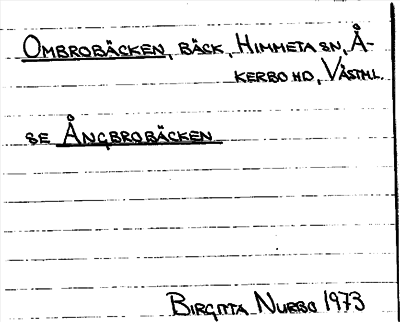 Ombrobäcken, bäck, Himmeta sn, Å-
kerbo hd, Västml.
se Ångbrobäcken
Birgitta Nurbo 1973